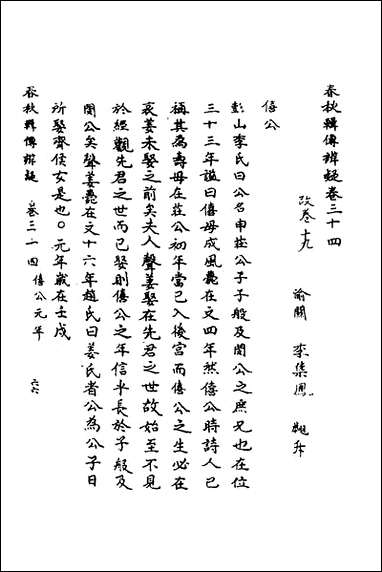 春秋輯傳辨疑卷三十四
改卷十九
渝關 李集鳳 翽升
僖公
彭山季氏曰公名申莊公子子般及閔公之庶兄也在位
三十三年謚曰僖母成風薨在文四年然僖公時詩人已
稱其為壽母在莊公初年當已入後宮而僖公之生必在
哀姜未娶之前矣夫人聲姜娶在先君之世故始至不見
於經觀先君之世而已娶則僖公之年信乎長於子般及
閔公矣聲姜薨在文十六年趙氏曰姜氏者公為公子日
所娶齊侯女是也○元年歲在壬戌
春秋輯傳辨疑 卷三十四 僖公元年 六六